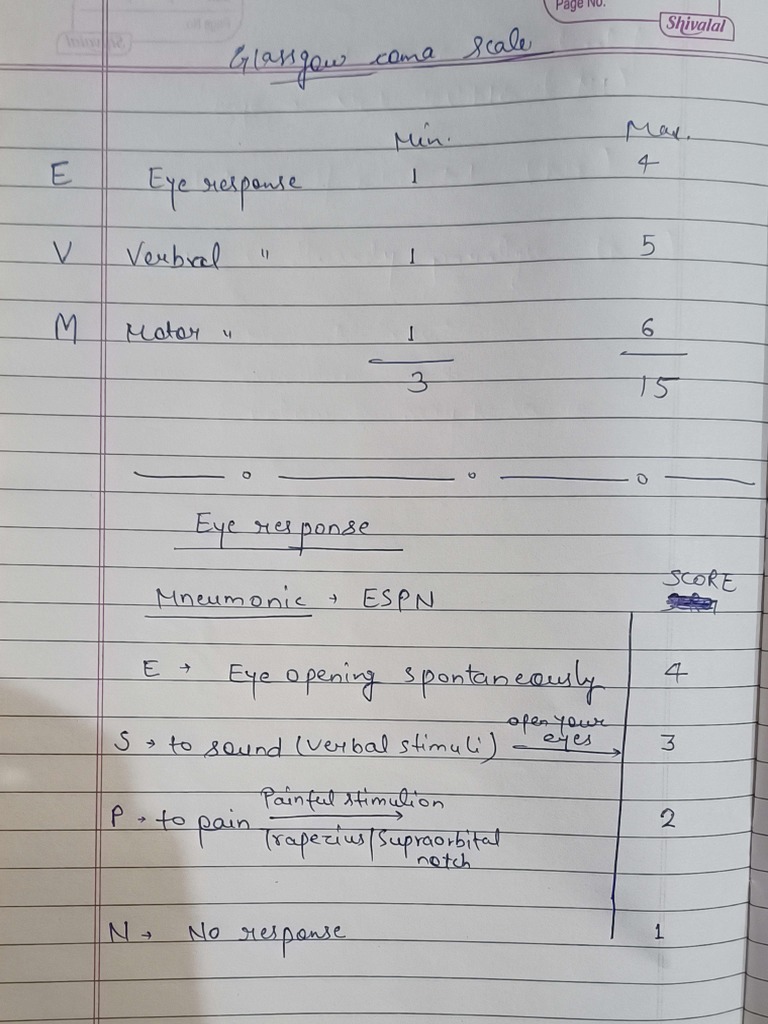 Page No.
Shivalal
Glassgow coma scale
Min. Max.
E Eye response 1 4
V Verbral " 1 5
M Motor " 1 6
3 15
Eye response
SCORE
Mneumonic → ESPN
E → Eye opening spontaneously 4
S → to sound (verbal stimuli) open your eyes → 3
P → to pain Painful stimulion → Trapezius/Supraorbital notch 2
N → No response 1